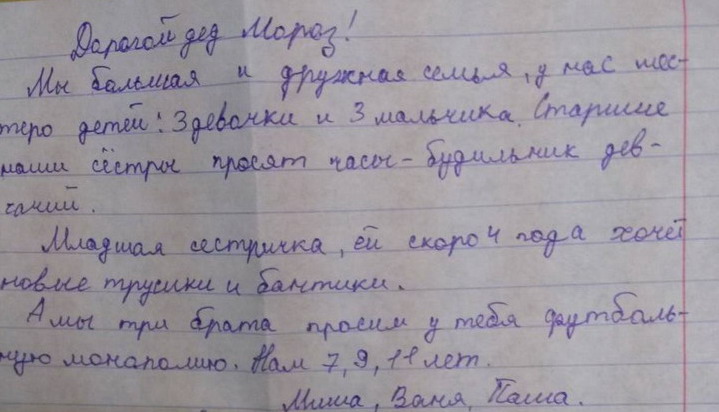 Дорогой дед Мороз!
Мы большая и дружная семья, у нас шес-
теро детей: 3 девочки и 3 мальчика. Старшие
наши сёстры просят часы - будильник дев-
чачий.
Младшая сестричка, ей скоро 4 года хочет
новые трусики и бантики.
А мы три брата просим у тебя футболь-
ную монаполию. Нам 7, 9, 11 лет.
Миша, Ваня, Паша.